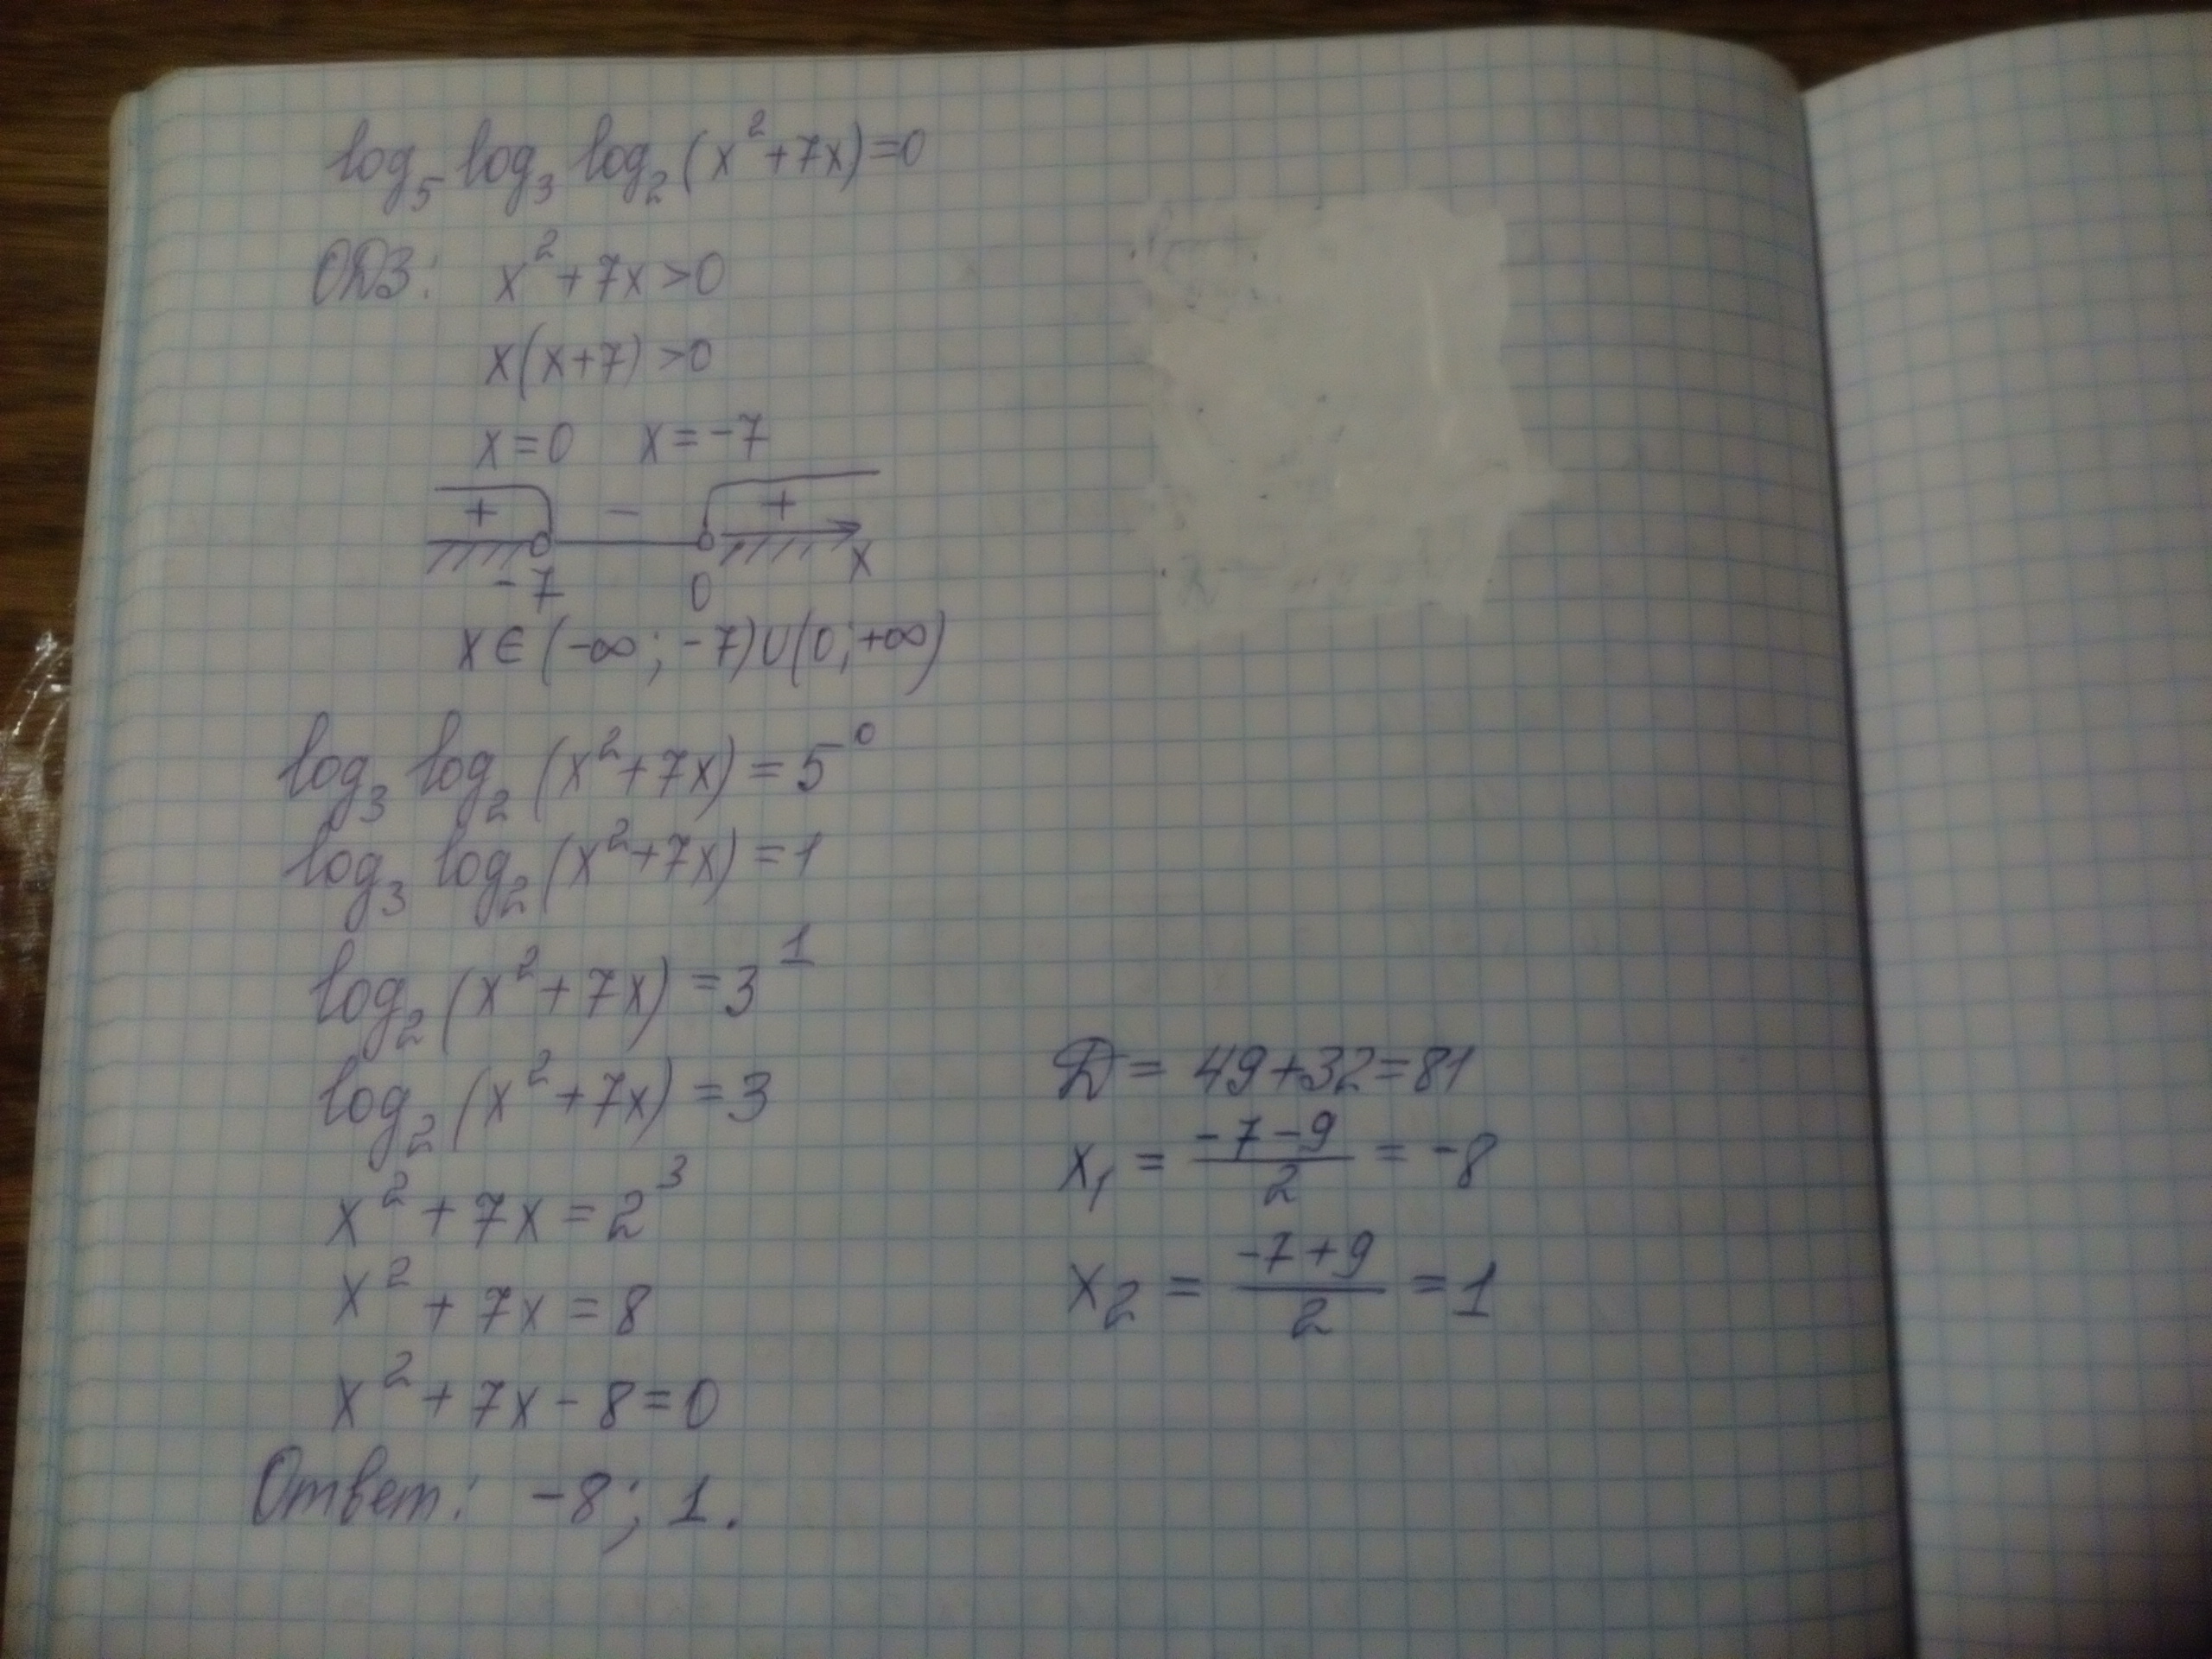 log₅ log₃ log₂ (x²+7x)=0
ОДЗ: x²+7x>0
x(x+7)>0
x=0 x=-7
+ - +
-7 0 x
x∈(-∞; -7)∪(0; +∞)
log₃ log₂ (x²+7x) = 5⁰
log₃ log₂ (x²+7x) = 1
log₂ (x²+7x) = 3¹
log₂ (x²+7x) = 3
x²+7x = 2³
x²+7x = 8
x²+7x-8=0
D = 49+32=81
x₁ = (-7-9)/2 = -8
x₂ = (-7+9)/2 = 1
Ответ: -8; 1.